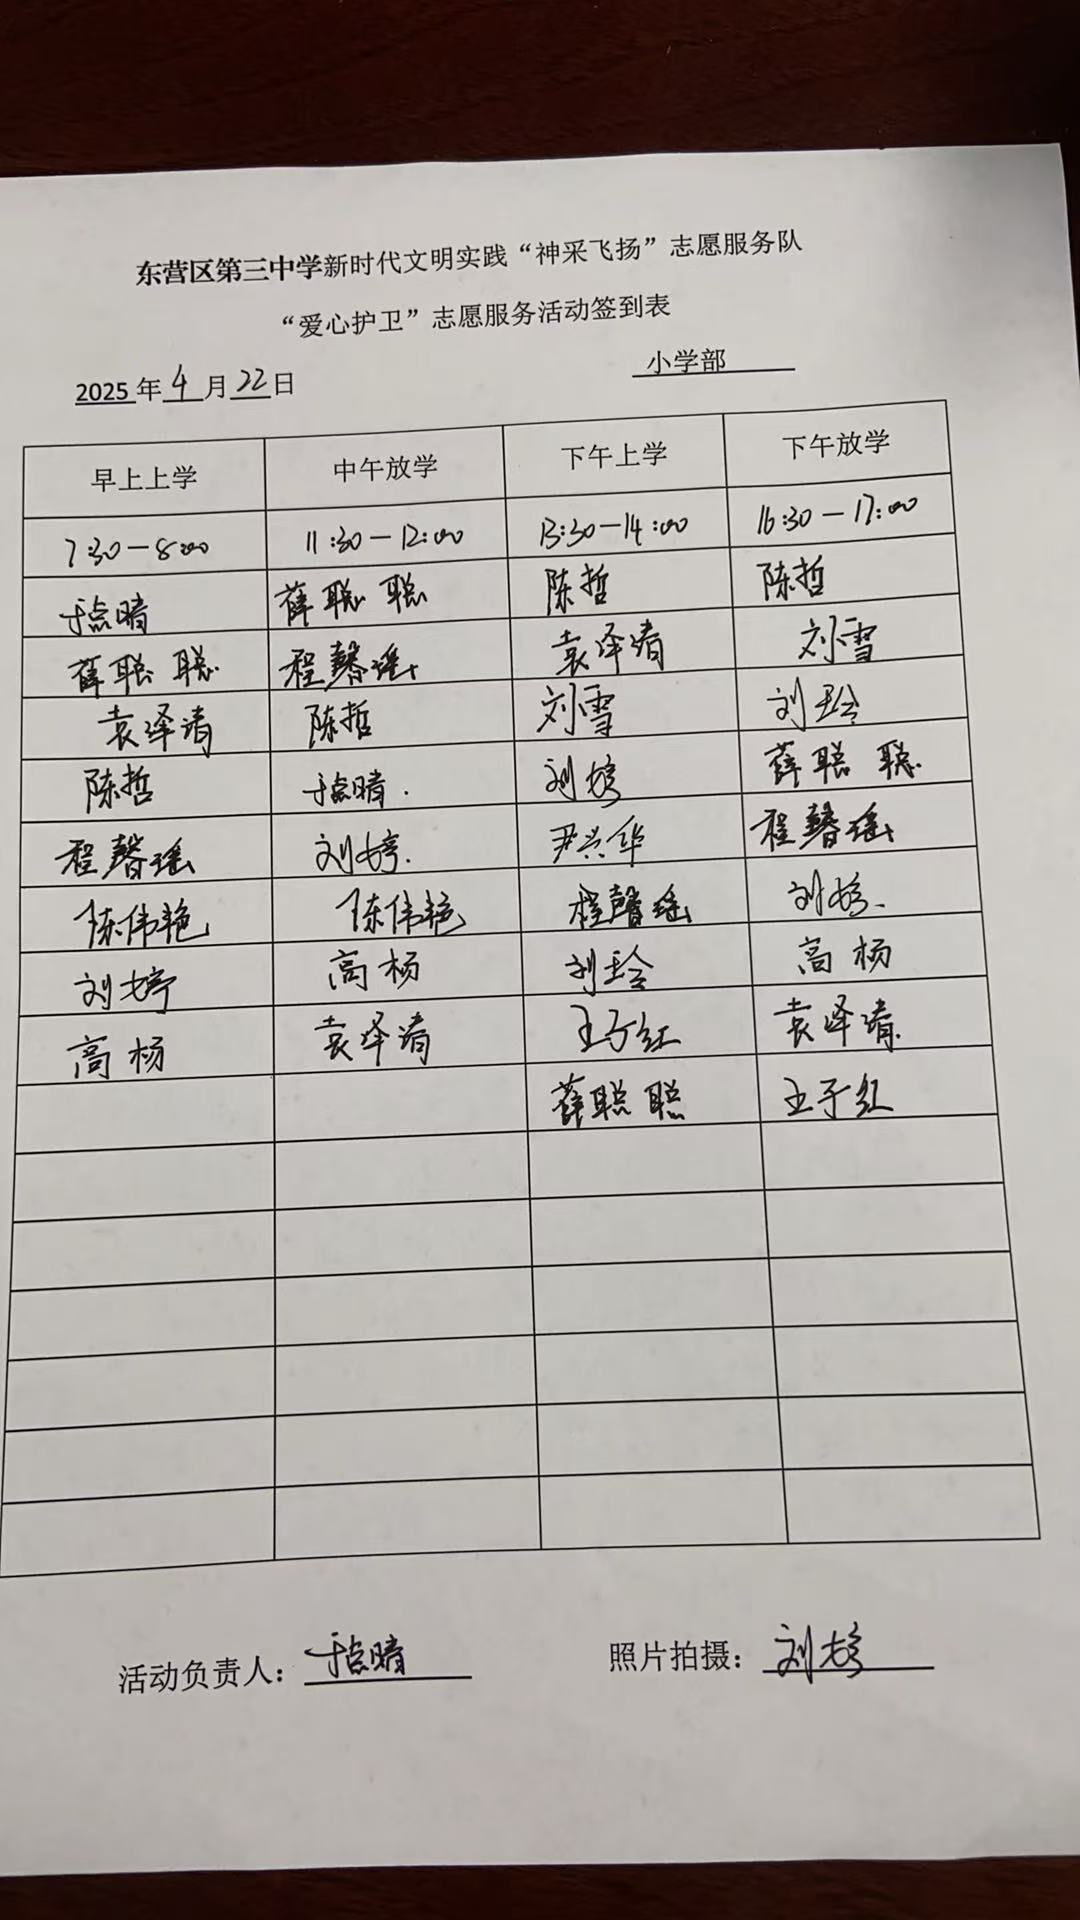 东营区第三中学新时代文明实践“神采飞扬”志愿服务队
“爱心护卫”志愿服务活动签到表
2025年4月22日 小学部
早上上学 中午放学 下午上学 下午放学
7:30-8:00 11:30-12:00 13:30-14:00 16:30-17:00
于点晴 薛聪聪 陈哲 陈哲
薛聪聪 程馨瑶 袁泽清 刘雪
袁泽清 陈哲 刘雪 刘玲
陈哲 于点晴. 刘婷 薛聪聪.
程馨瑶 刘婷. 尹兴华 程馨瑶
陈伟艳 陈伟艳 程馨瑶 刘婷.
刘婷 高杨 刘玲 高杨
高杨 袁泽清 王子红 袁泽清.
薛聪聪 王子红
活动负责人：于点晴 照片拍摄：刘婷